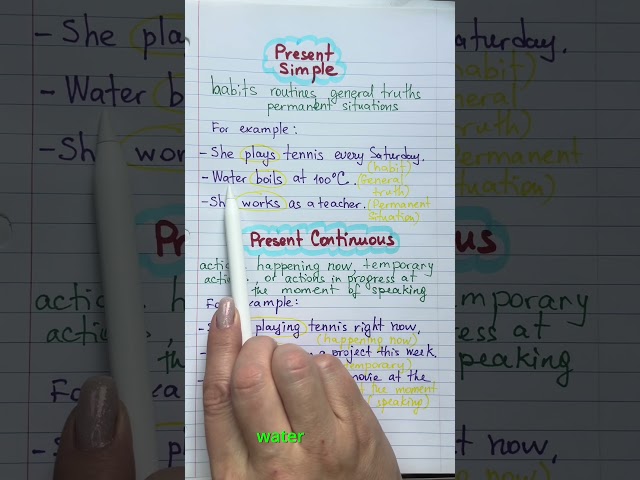 Present
Simple
habits routines general truths
permanent situations
For example:
- She plays tennis every Saturday.
(habit)
- Water boils at 100°C. (General
truth)
- She works as a teacher. (Permanent
situation)
Present Continuous
happening now, temporary
or actions in progress at
the moment of speaking
example:
playing tennis right now,
(happening now)
a project this week.
(temporary)
movie at the
the moment
(speaking)
water